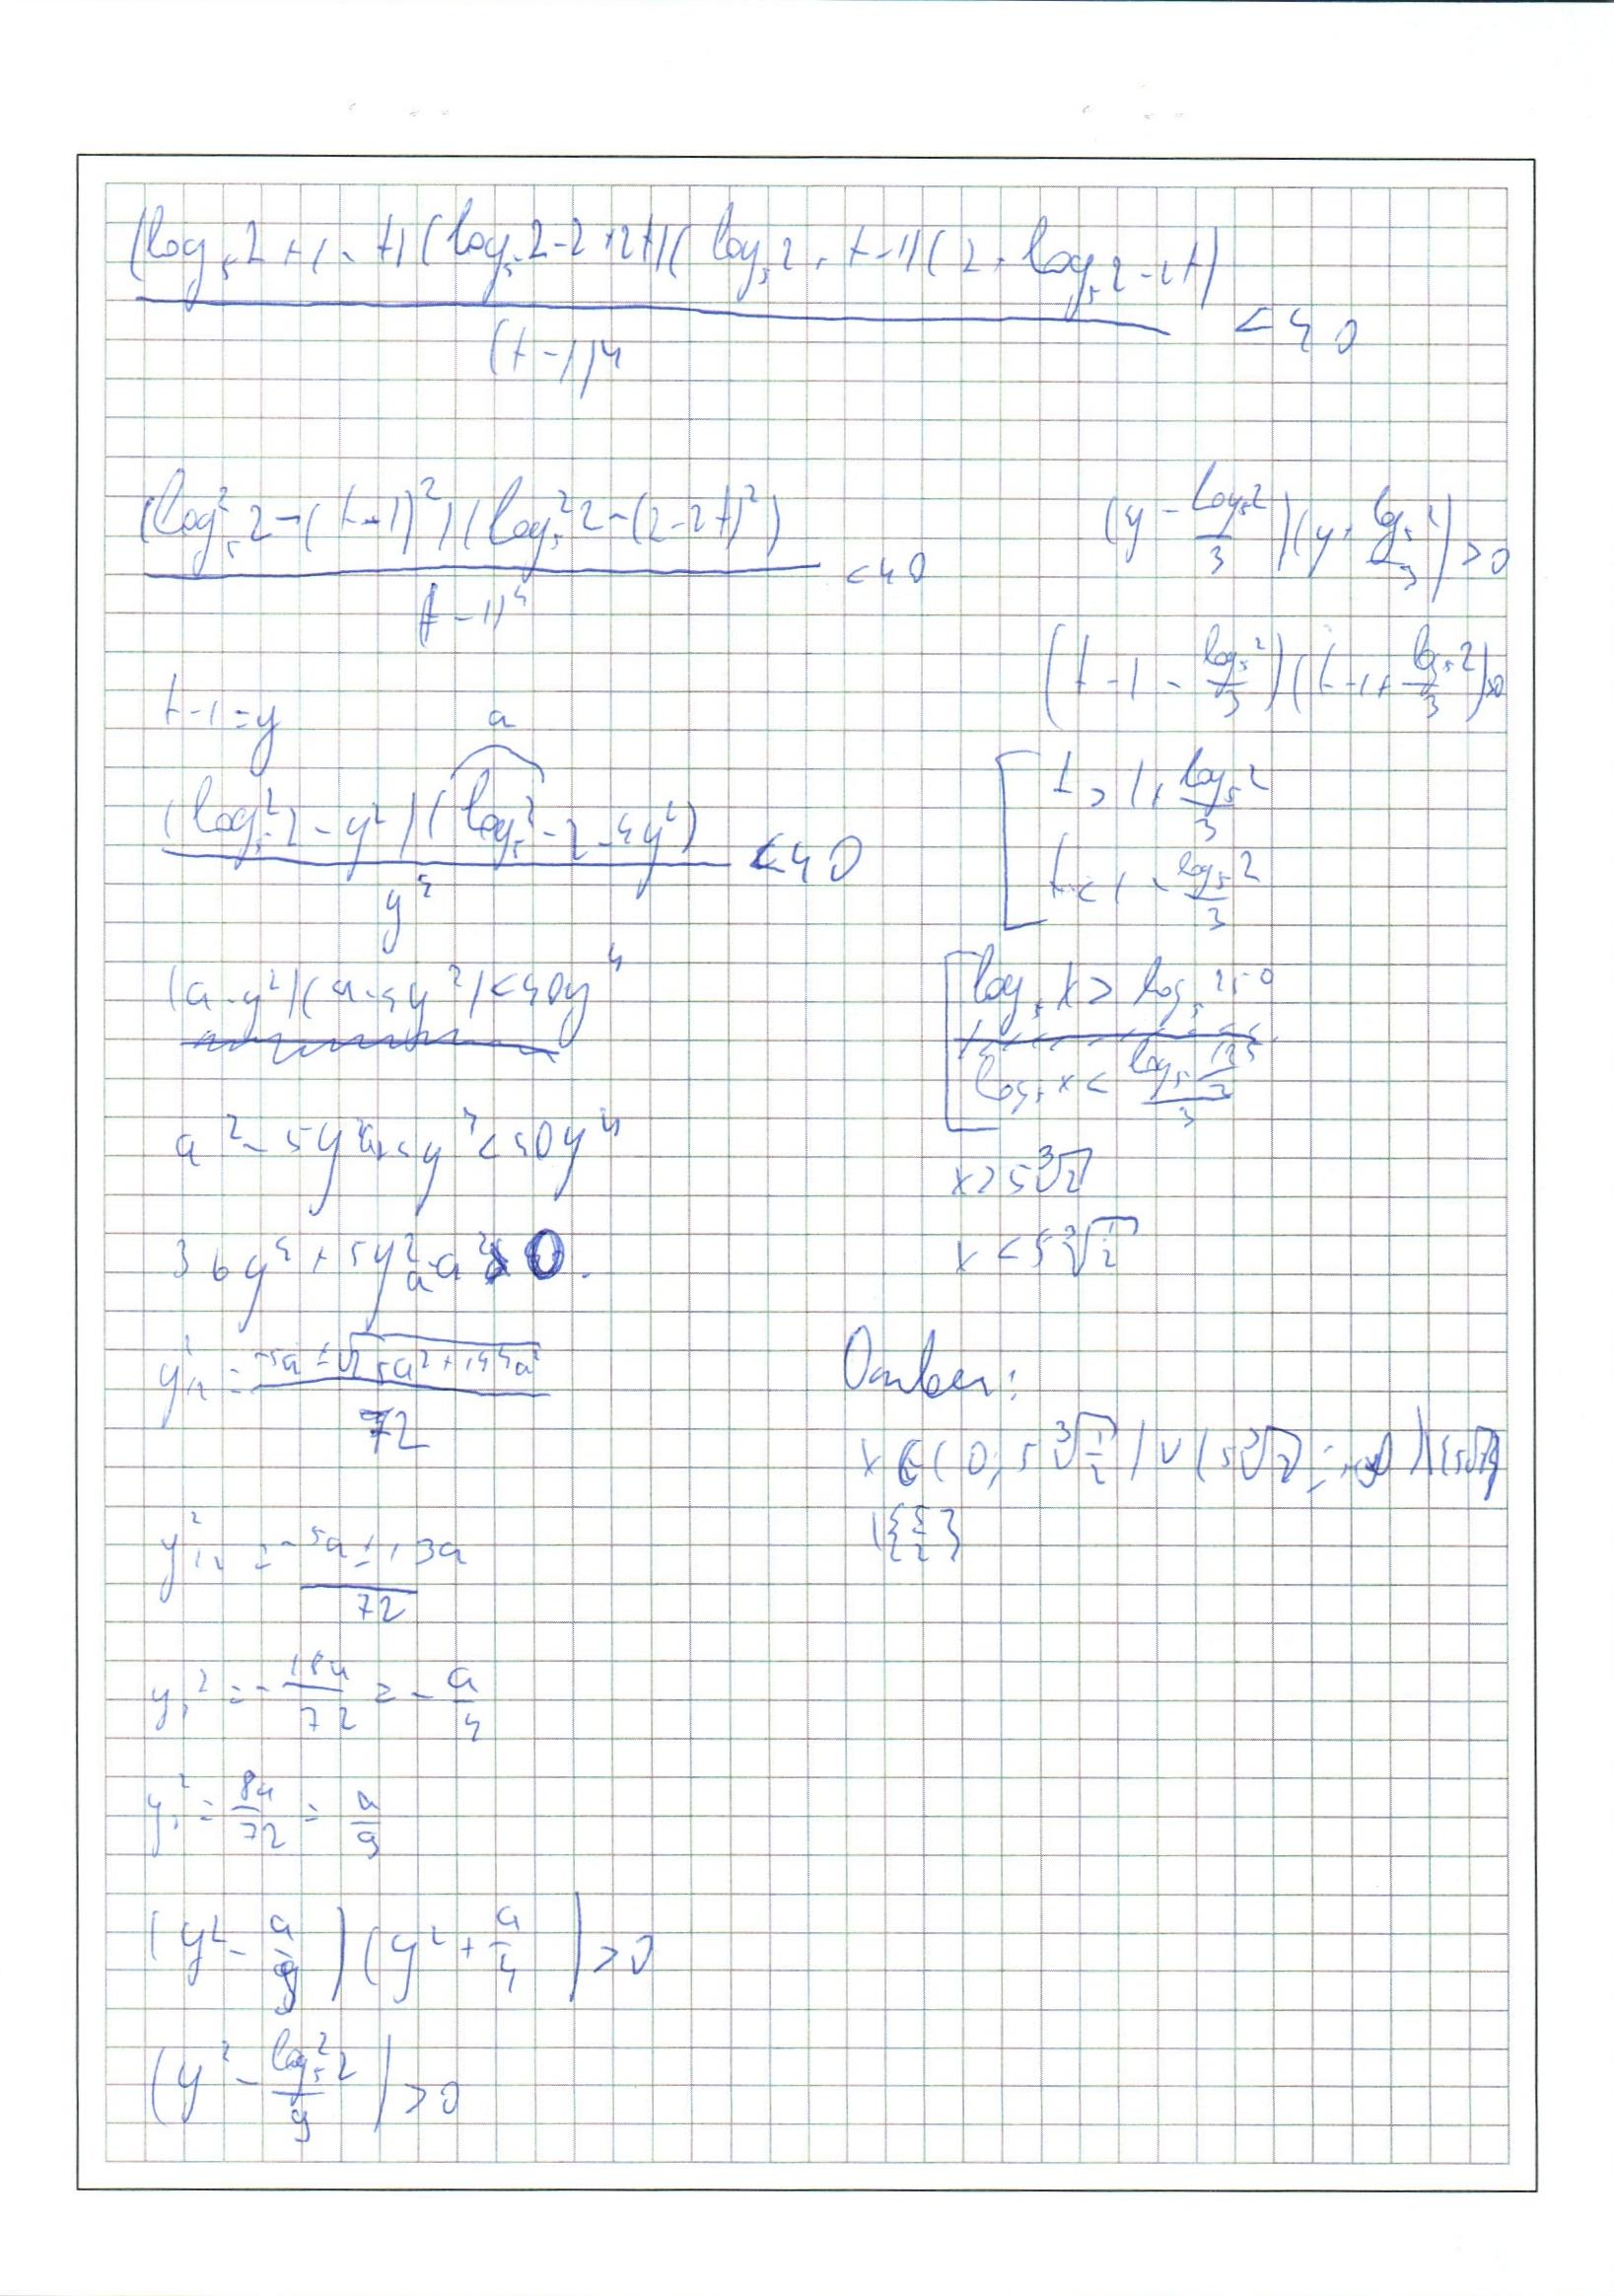 (log₅2 + 1 - t)(log₅2 - 2 + 2t)(log₅2 + t - 1)(2 + log₅2 - 2t)
/ (t - 1)⁴ < 40
(log₅²2 - (t - 1)²)(log₅²2 - (2 - 2t)²)
/ (t - 1)⁴ < 40
t - 1 = y
a
(log₅²2 - y²)(log₅²2 - 4y²)
/ y⁴ < 40
(a - y²)(a - 4y²) < 40y⁴
a² - 5y²a + 4y⁴ < 40y⁴
36y⁴ + 5y²a - a² > 0.
y²₁,₂ = (-5a ± √(25a² + 144a²)) / 72
y²₁,₂ = (-5a ± 13a) / 72
y₁² = -18a/72 = -a/4
y₂² = 8a/72 = a/9
(y² - a/9)(y² + a/4) > 0
(y² - log₅²2/9) > 0
(y - log₅2/3)(y + log₅2/3) > 0
(t - 1 - log₅2/3)(t - 1 + log₅2/3) > 0
[ t > 1 + log₅2/3
t < 1 - log₅2/3
[ log₅x > log₅250 / 3
log₅x < log₅(125/2) / 3
x > 5∛2
x < 5∛(1/2)
Ответ:
x ∈ (0; 5∛(1/2)) ∪ (5∛2; +∞) \ {5√2}
\ {5/2}